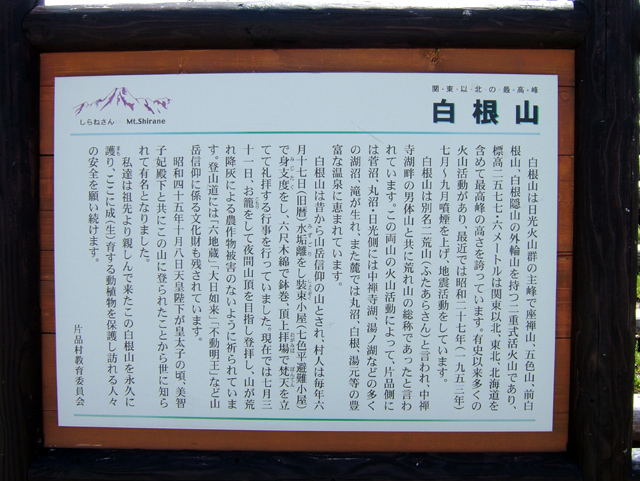 関・東・以・北・の・最・高・峰
白根山
しらねさん… Mt.Shirane
白根山は日光火山群の主峰で座禅山、五色山、前白
根山、白根隠山の外輪山を持つ二重式活火山であり、
標高二五七七・六メートルは関東以北、東北、北海道を
含めて最高峰の高さを誇っています。有史以来多くの
火山活動があり、最近では昭和二十七年（一九五二年）
七月〜九月噴煙を上げ、地震活動をしています。
白根山は別名二荒山（ふたあらさん）と言われ、中禅
寺湖畔の男体山と共に荒れ山の総称であったと言わ
れています。この両山の火山活動によって、片品側に
は菅沼、丸沼・日光側には中禅寺湖、湯ノ湖などの多く
の湖沼、滝が生れ、また麓では丸沼、白根、湯元等の豊
富な温泉に恵まれています。
白根山は昔から山岳信仰の山とされ、村人は毎年六
月十七日（旧暦）水垢離をし装束小屋（七色平避難小屋）
で身支度をし、六尺木綿で鉢巻、頂上拝場で梵天を立
てて礼拝する行事を行っていました。現在では七月三
十一日、お籠をして夜間山頂を目指し登拝し、山が荒
れ降灰による農作物被害のないように祈られていま
す。登山道には「六地蔵」「大日如来」「不動明王」など山
岳信仰に係る文化財も残されています。
昭和四十五年十月八日天皇陛下が皇太子の頃、美智
子妃殿下と共にこの山に登られたことから世に知ら
れて有名となりました。
私達は祖先より親しんで来たこの白根山を永久に
護り、ここに成（生）育する動植物を保護し訪れる人々
の安全を願い続けます。
片品村教育委員会